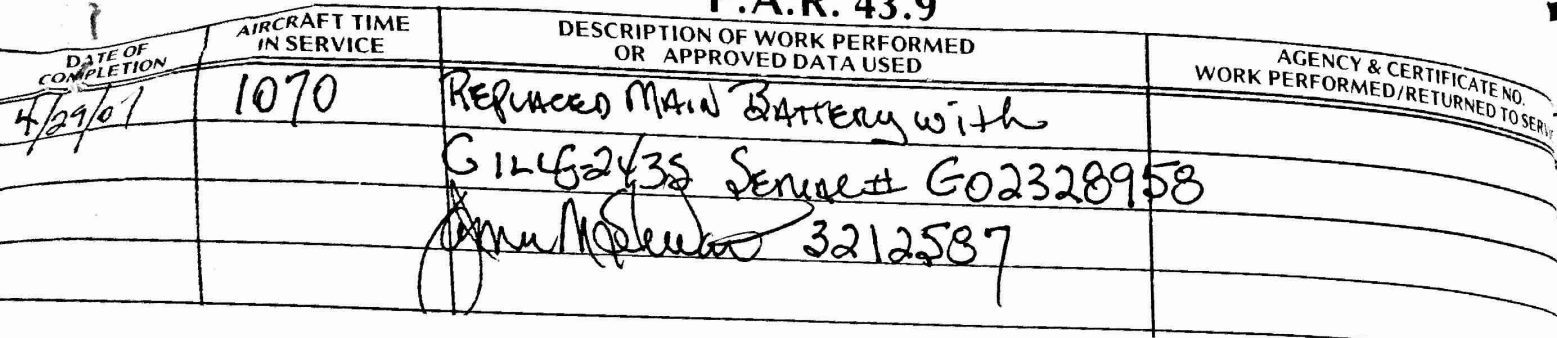 F.A.R. 43.9
DATE OF
COMPLETION
AIRCRAFT TIME
IN SERVICE
DESCRIPTION OF WORK PERFORMED
OR APPROVED DATA USED
AGENCY & CERTIFICATE NO.
WORK PERFORMED/RETURNED TO SERV
4/29/07 1070 REPLACED MAIN BATTERY with
GILL G-243S Serial# G02328958
3212587